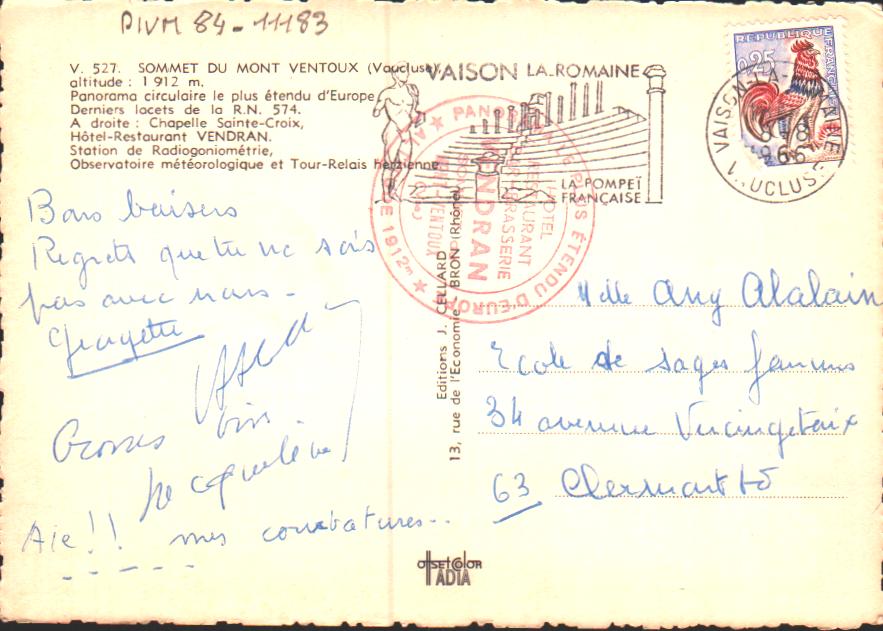 PIVM 84-11183
V. 527. SOMMET DU MONT VENTOUX (Vaucluse),
altitude : 1 912 m.
Panorama circulaire le plus étendu d'Europe
Derniers lacets de la R.N. 574.
A droite : Chapelle Sainte-Croix,
Hôtel-Restaurant VENDRAN.
Station de Radiogoniométrie,
Observatoire météorologique et Tour-Relais hertzienne
VAISON LA-ROMAINE
LA POMPEÏ
FRANÇAISE
REPUBLIQUE FRANÇAISE
0,25
VAISON-LA-ROMAINE
1966
VAUCLUSE
LE PLUS ÉTENDU D'EUROPE
1912m
HÔTEL
RESTAURANT
BRASSERIE
VENDRAN
VENTOUX
Bons baisers
Regrets que tu ne sois
pas avec nous -
Georgette
Grosses bises
Jacqueline
Aie!! mes courbatures..
Editions J. CELLARD
13, rue de l'Economie, BRON (Rhône)
Mlle Any Alalain
Ecole de sages femmes
34 avenue Vercingetorix
63 Clermont Fd
OFFSET COLOR
IADIA